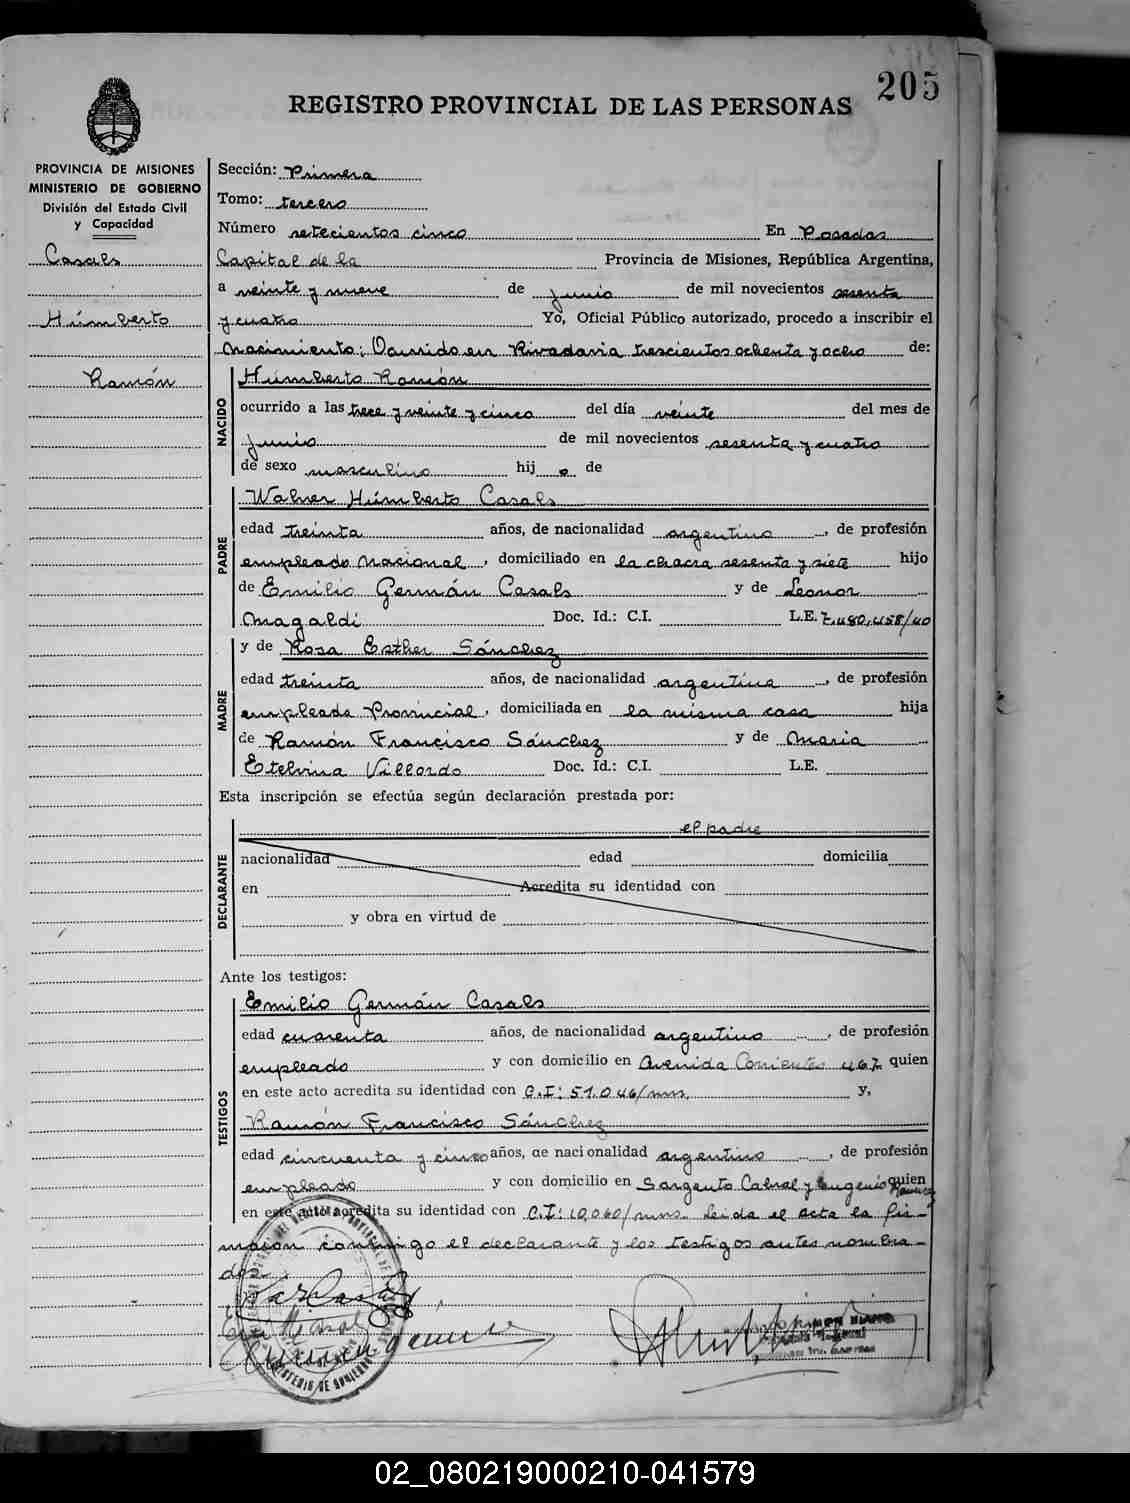 205
REGISTRO PROVINCIAL DE LAS PERSONAS
PROVINCIA DE MISIONES
MINISTERIO DE GOBIERNO
División del Estado Civil
y Capacidad
Casals
Húmberto
Ramón
Sección: Primera
Tomo: tercero
Número setecientos cinco En Posadas
Capital de la Provincia de Misiones, República Argentina,
a veinte y nueve de junio de mil novecientos sesenta
y cuatro Yo, Oficial Público autorizado, procedo a inscribir el
Nacimiento: Ocurrido en Rivadavia trescientos ochenta y ocho de:
NACIDO
Húmberto Ramón
ocurrido a las trece y veinte y cinco del día veinte del mes de
junio de mil novecientos sesenta y cuatro
de sexo masculino hij o de
PADRE
Walver Húmberto Casals
edad treinta años, de nacionalidad argentino, de profesión
empleado Nacional, domiciliado en la chacra sesenta y siete hijo
de Emilio Germán Casals y de Leonor
Magaldi Doc. Id.: C.I. L.E. 7.480.458/40
MADRE
y de Rosa Esther Sánchez
edad treinta años, de nacionalidad argentina, de profesión
empleada Provincial, domiciliada en la misma casa hija
de Ramón Francisco Sánchez y de María
Etelvina Villordo Doc. Id.: C.I. L.E.
Esta inscripción se efectúa según declaración prestada por:
DECLARANTE
el padre
nacionalidad edad domicilia
en Acredita su identidad con
y obra en virtud de
Ante los testigos:
TESTIGOS
Emilio Germán Casals
edad cuarenta años, de nacionalidad argentino, de profesión
empleado y con domicilio en Avenida Corrientes 467 quien
en este acto acredita su identidad con C.I: 51.046/mns. y,
Ramón Francisco Sánchez
edad cincuenta y cinco años, de nacionalidad argentino, de profesión
empleado y con domicilio en Sargento Cabral y Eugenio Ramirez quien
en este acto acredita su identidad con C.I: 10.060/mns. Leida el acta la fir-
maron conmigo el declarante y los testigos antes nombra-
dos.
02_080219000210-041579